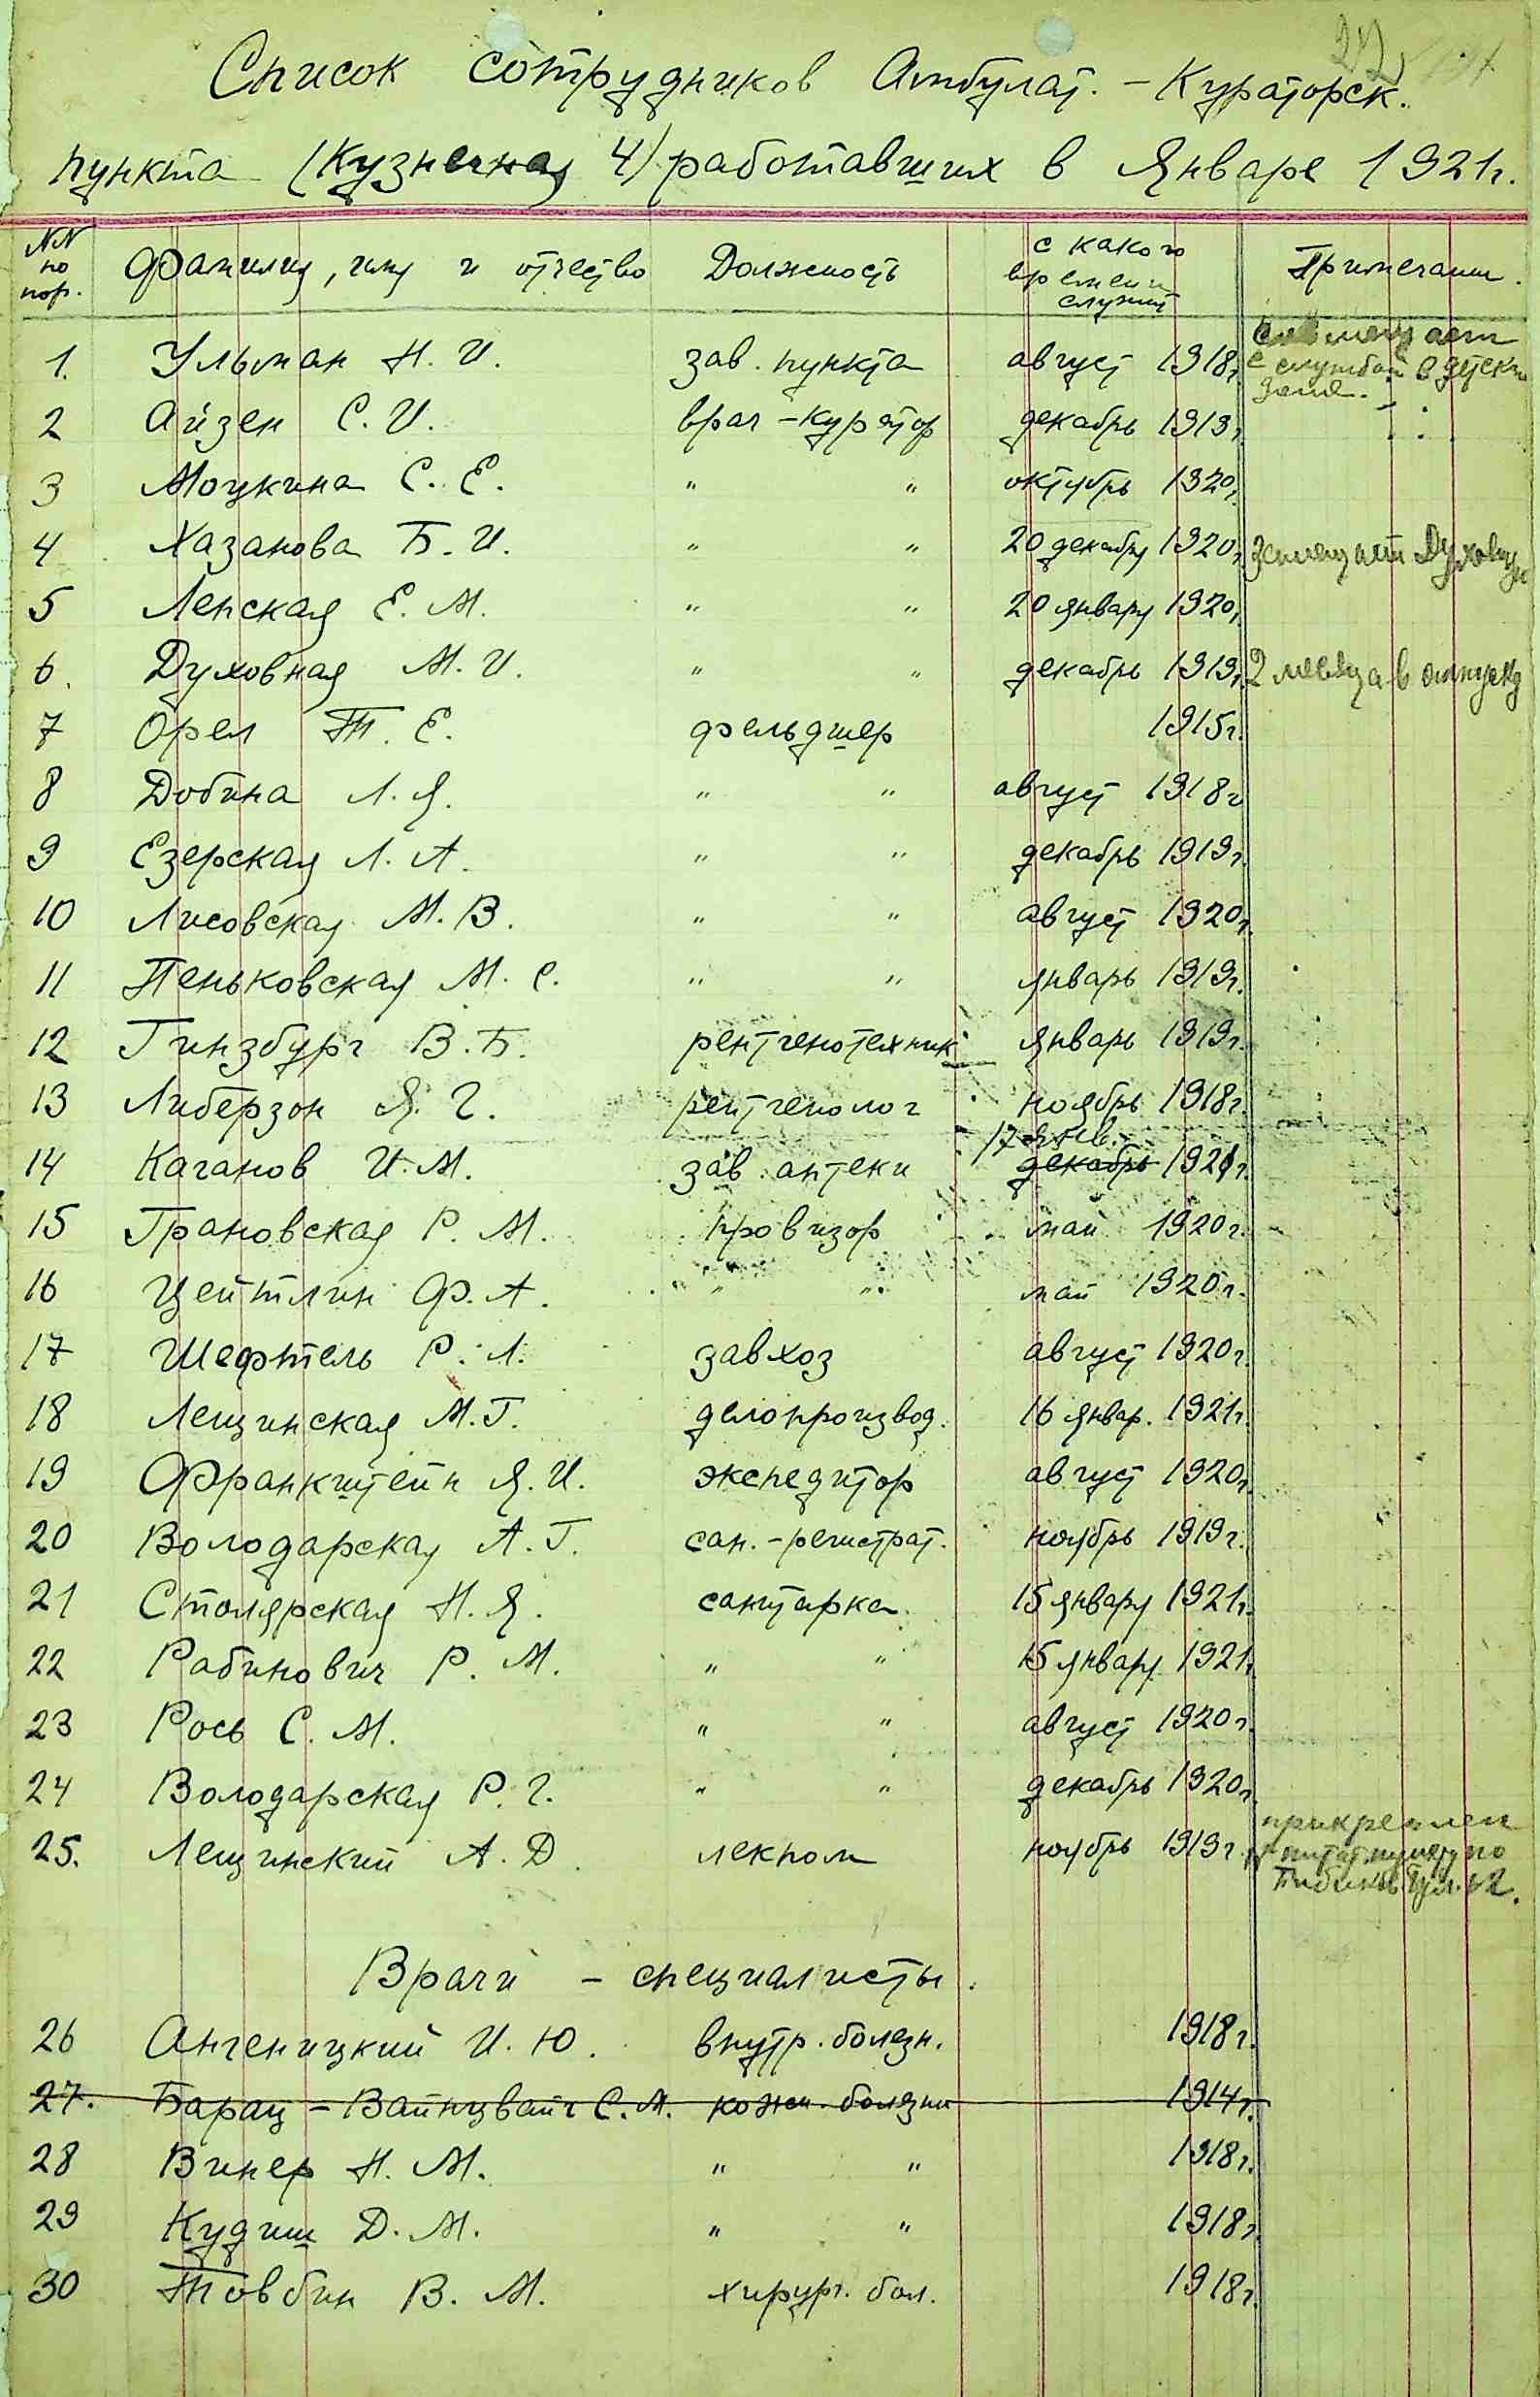 Список сотрудников Амбулат. - Кураторск.
пункта (Кузнечная 4) работавших в Январе 1921г.
NN по пор. Фамилия, имя и отчество Должность с какого времени служит Примечание.
1. Ульман Н. И. зав. пункта август 1918г. совмещает с службой в детском доме.
2 Айзен С. И. врач - куратор декабрь 1919г.
3 Моцкина С. Е. " " октябрь 1920г.
4 Хазанова Б. И. " " 20 декабря 1920г. замещает Духовную
5 Ленская Е. М. " " 20 января 1920г.
6. Духовная М. И. " " декабрь 1919г. 2 месяца в отпуску
7 Орел Т. Е. фельдшер 1915г.
8 Добина Л. Я. " " август 1918г
9 Езерская Л. А. " " декабрь 1919г.
10 Лисовская М. В. " " август 1920г.
11 Пеньковская М. С. " " январь 1919г.
12 Гинзбург В. Б. рентгенотехник январь 1919г.
13 Либерзон Я. Г. рентгенолог ноябрь 1918г.
14 Каганов И. М. зав. аптеки 17 янв. декабрь 1921г.
15 Грановская Р. М. провизор май 1920г.
16 Цейтлин Ф. А. " " май 1920г.
17 Шефтель Р. Л. завхоз август 1920г.
18 Лещинская М. Г. делопроизвод. 16 январ. 1921г.
19 Франкштейн Я. И. экспедитор август 1920г.
20 Володарская А. Г. сан. - регистрат. ноябрь 1919г.
21 Столярская Н. Я. санитарка 15 января 1921г.
22 Рабинович Р. М. " " 15 января 1921г.
23 Рось С. М. " " август 1920г.
24 Володарская Р. Г. " " декабрь 1920г.
25. Лещинский А. Д. лекпом ноябрь 1919г. прикреплен к питат. пункту по Бибиков. бул. 42.
Врачи - специалисты.
26 Ангеницкий И. Ю. внутр. болезн. 1918г.
27. Барац - Вайнцвайг С. М. кожн. болезни 1914г.
28 Винер Н. М. " " 1918г.
29 Кудиш Д. М. " " 1918г.
30 Товбин В. М. хирург. бол. 1918г.